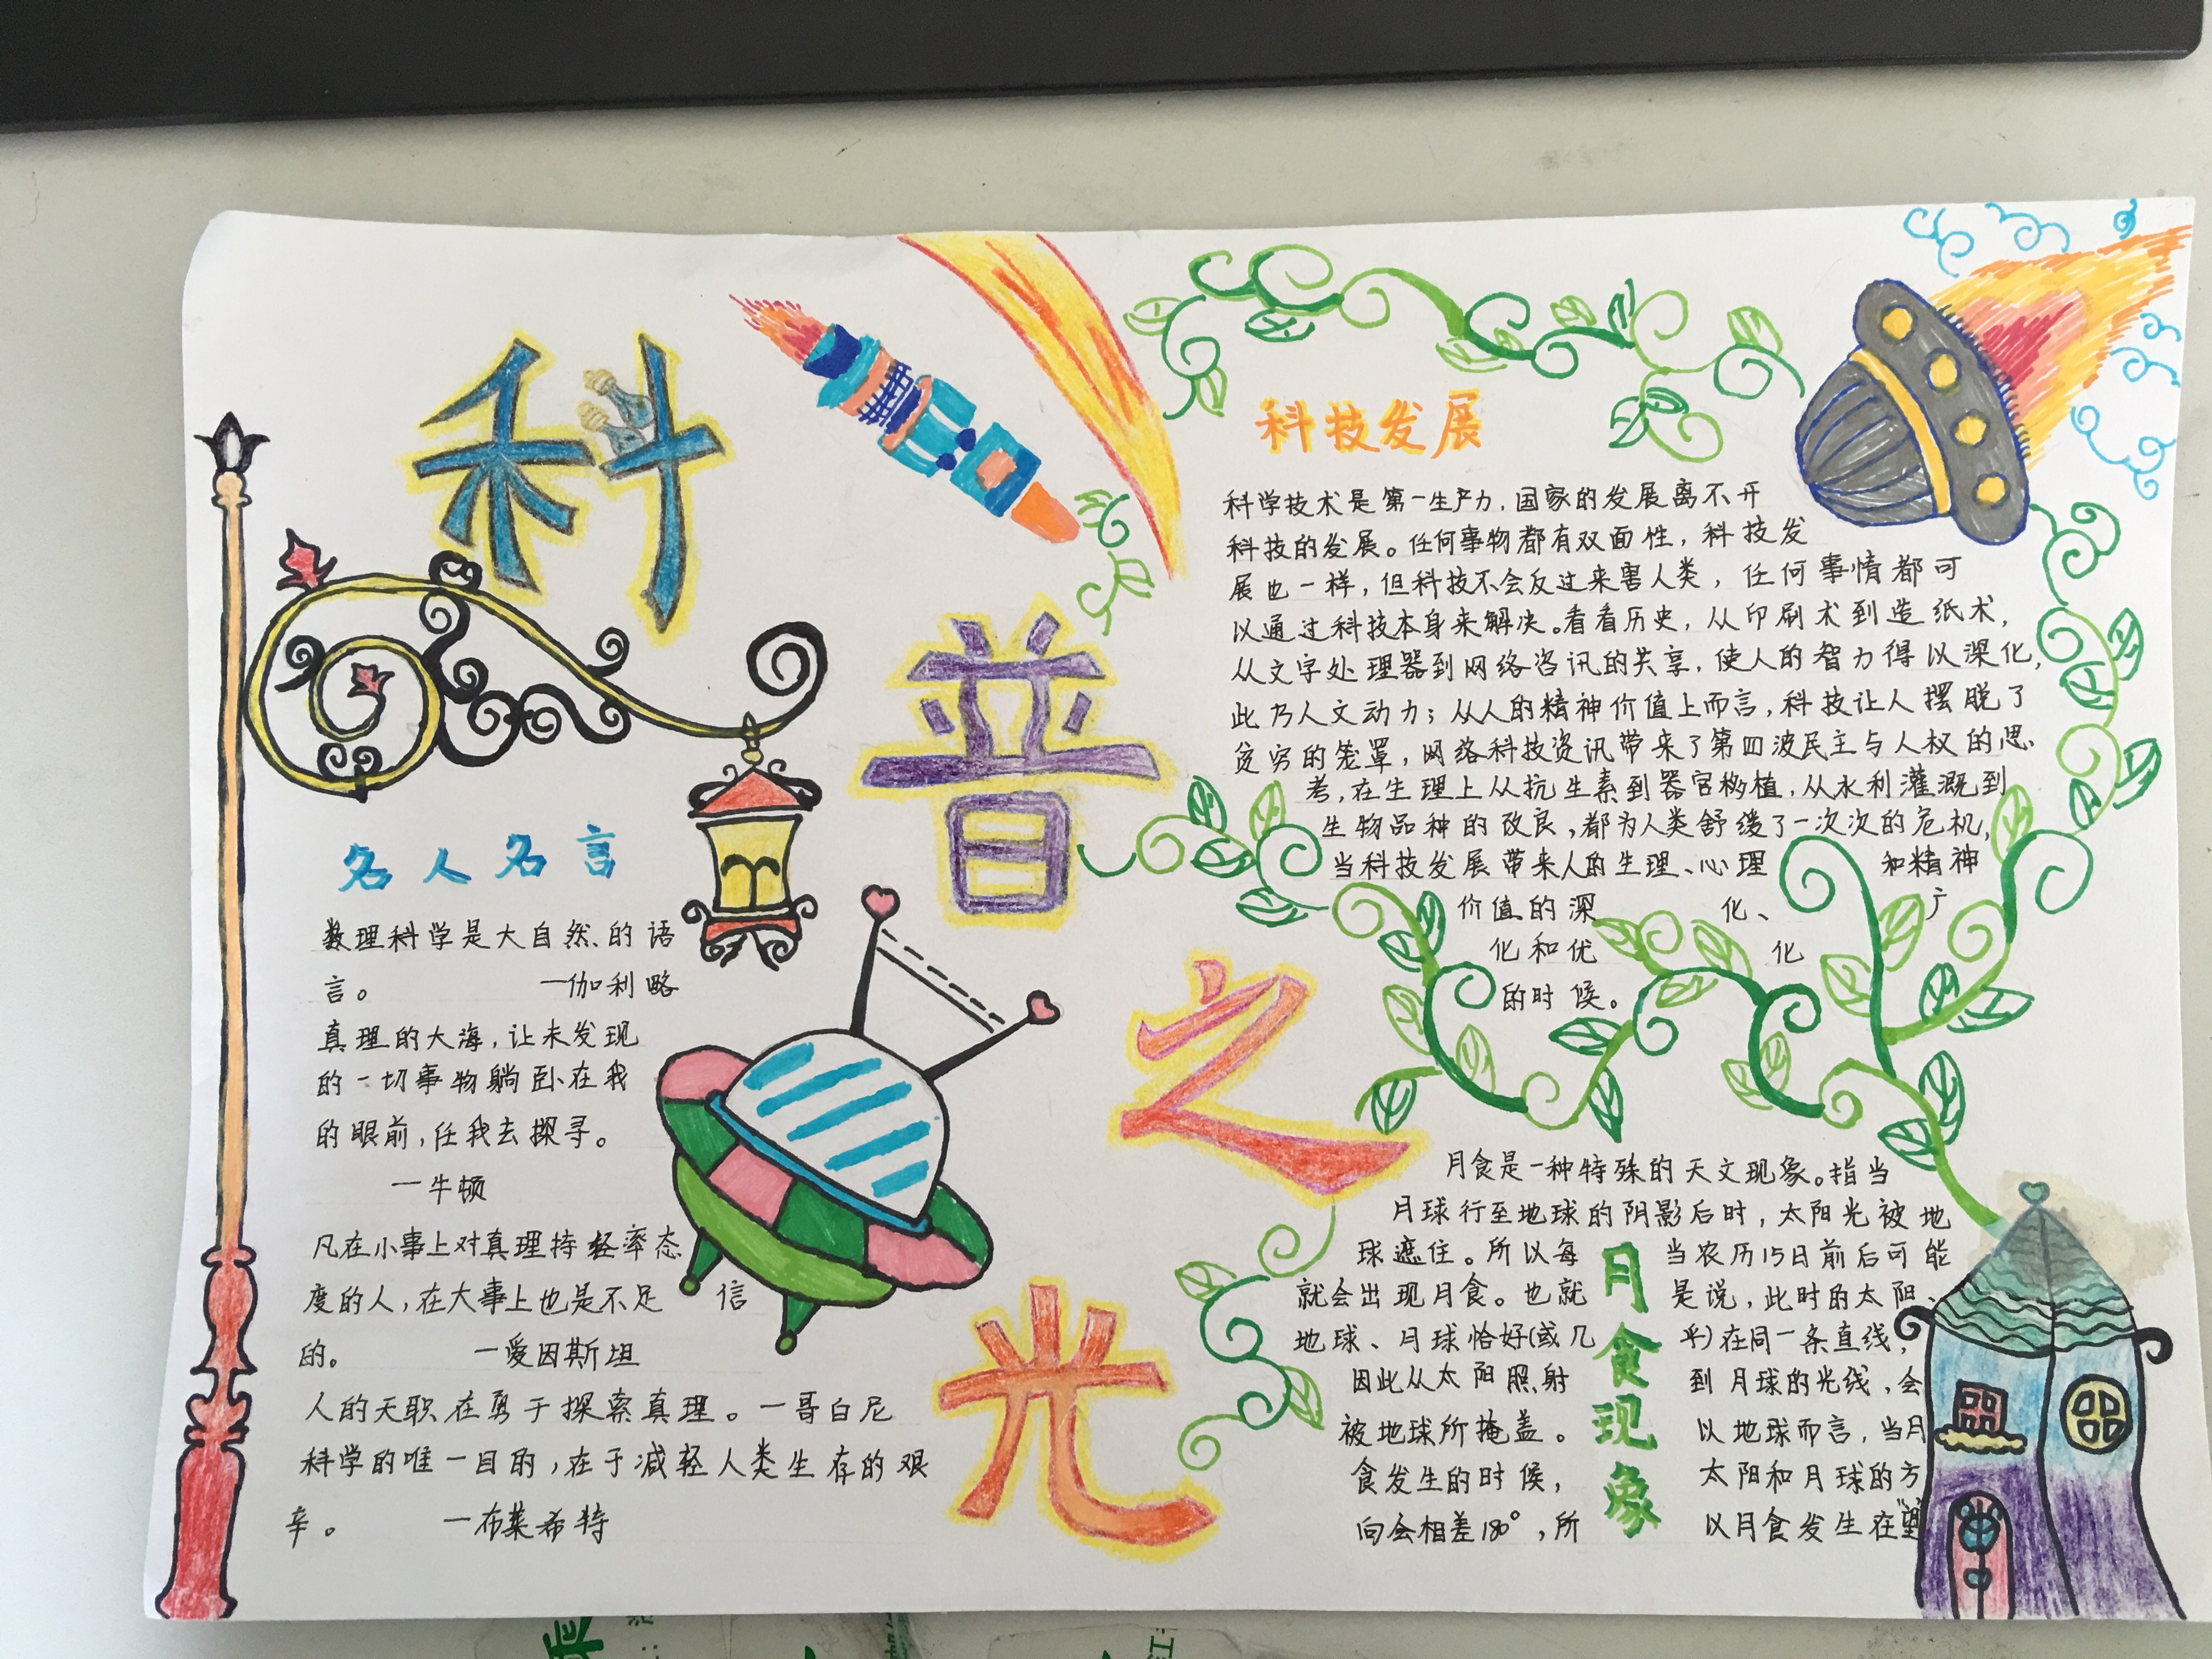 科
普
之
光
名人名言
数理科学是大自然的语
言。 —伽利略
真理的大海,让未发现
的一切事物躺卧在我
的眼前,任我去探寻。
—牛顿
凡在小事上对真理持轻率态
度的人,在大事上也是不足信
的。 —爱因斯坦
人的天职在勇于探索真理。—哥白尼
科学的唯一目的,在于减轻人类生存的艰
辛。 —布莱希特
科技发展
科学技术是第一生产力,国家的发展离不开
科技的发展。任何事物都有双面性,科技发
展也一样,但科技不会反过来害人类,任何事情都可
以通过科技本身来解决。看看历史,从印刷术到造纸术,
从文字处理器到网络咨讯的共享,使人的智力得以深化,
此乃人文动力;从人的精神价值上而言,科技让人摆脱了
贫穷的笼罩,网络科技资讯带来了第四波民主与人权的思
考,在生理上从抗生素到器官移植,从水利灌溉到
生物品种的改良,都为人类舒缓了一次次的危机,
当科技发展带来人的生理、心理 和精神
价值的深 化、 广
化和优 化
的时候。
月食现象
月食是一种特殊的天文现象。指当
月球行至地球的阴影后时,太阳光被地
球遮住。所以每 当农历15日前后可能
就会出现月食。也就 是说,此时的太阳、
地球、月球恰好(或几 乎)在同一条直线,
因此从太阳照射 到月球的光线,会
被地球所掩盖。 以地球而言,当月
食发生的时候, 太阳和月球的方
向会相差180°,所 以月食发生在“望